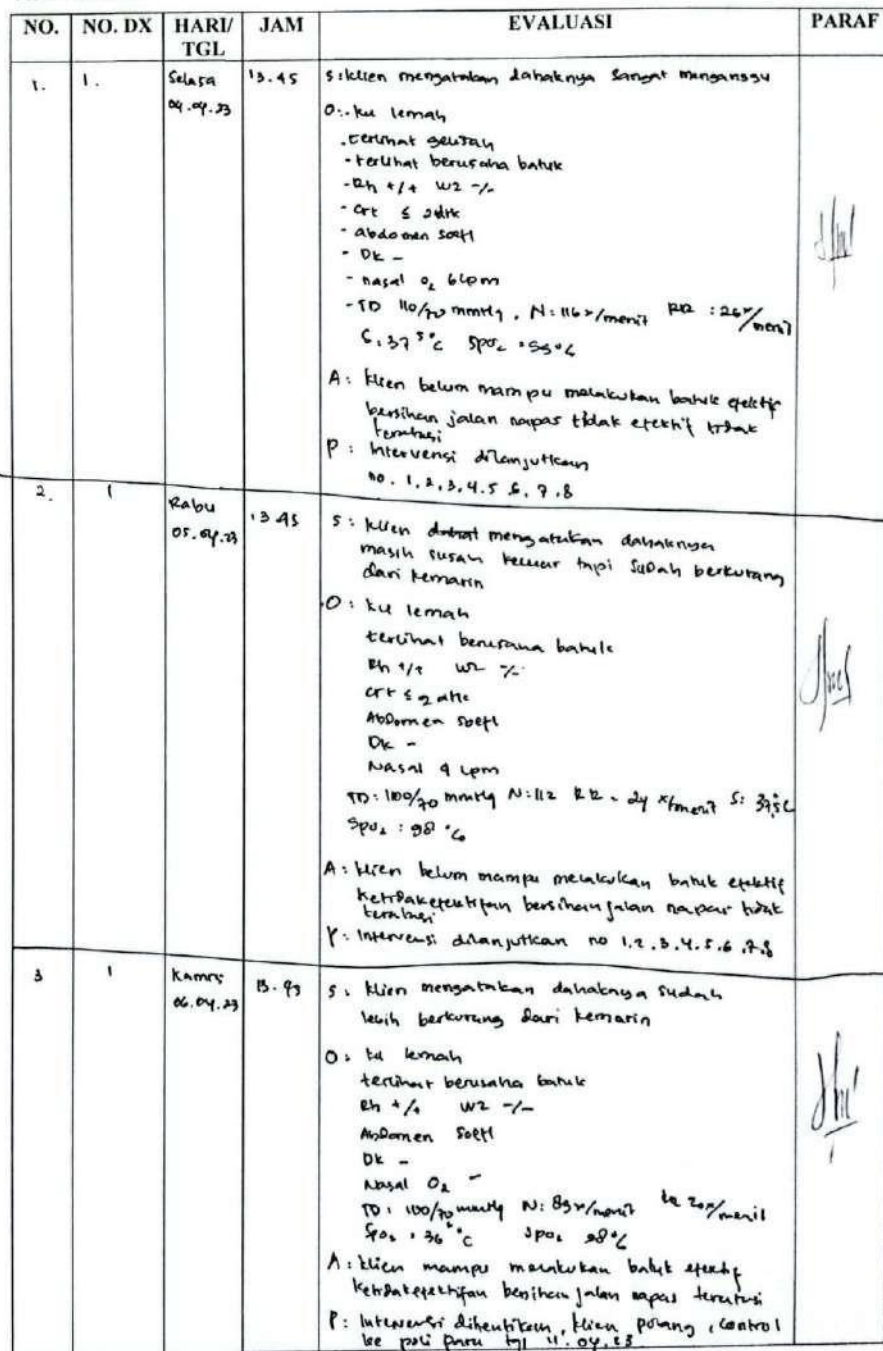 NO. NO. DX HARI/ TGL JAM EVALUASI PARAF
1. 1. Selasa 04.04.23 13.45
S: klien mengatakan dahaknya sangat menganggu
O: - ku lemah
- terlihat gelisah
- terlihat berusaha batuk
- Rh +/+ WZ -/-
- Crt ≤ 2dtk
- abdomen soefl
- DK -
- nasal O2 6 Lpm
- TD 110/70 mmHg, N: 116x/menit RR: 26x/menit
S. 37⁵°C SpO2
A: klien belum mampu melakukan batuk efektif
bersihan jalan napas tidak efektif tidak
teratasi
P: Intervensi dilanjutkan
no. 1,2,3,4.5.6,7.8
2. 1 Rabu 05.04.23 13.45
S: klien mengatakan dahaknya
masih susah keluar tapi sudah berkurang
dari kemarin
O: ku lemah
terlihat berusaha batuk
Rh +/+ WZ -/-
crt ≤ 2 dtk
Abdomen soefl
DK -
Nasal 4 Lpm
TD: 100/70 mmHg N: 112 RR - 24 x/menit S: 37,5°C
SpO2: 98 %
A: klien belum mampu melakukan batuk efektif
ketidakefektifan bersihan jalan napas tidak
teratasi
P: Intervensi dilanjutkan no 1,2.3.4.5.6.7.8
3 1 Kamis 06.04.23
S: klien mengatakan dahaknya sudah
lebih berkurang dari kemarin
O: ku lemah
terlihat berusaha batuk
Rh +/+ WZ -/-
Abdomen soefl
DK -
Nasal O2 -
TD: 100/70 mmHg N: 89x/menit RR 20x/menit
SpO2: 36 °C SpO2 98%
A: klien mampu melakukan batuk efektif
ketidakefektifan bersihan jalan napas teratasi
P: Intervensi dihentikan, klien pulang, control
ke poli paru tgl 11.04.23